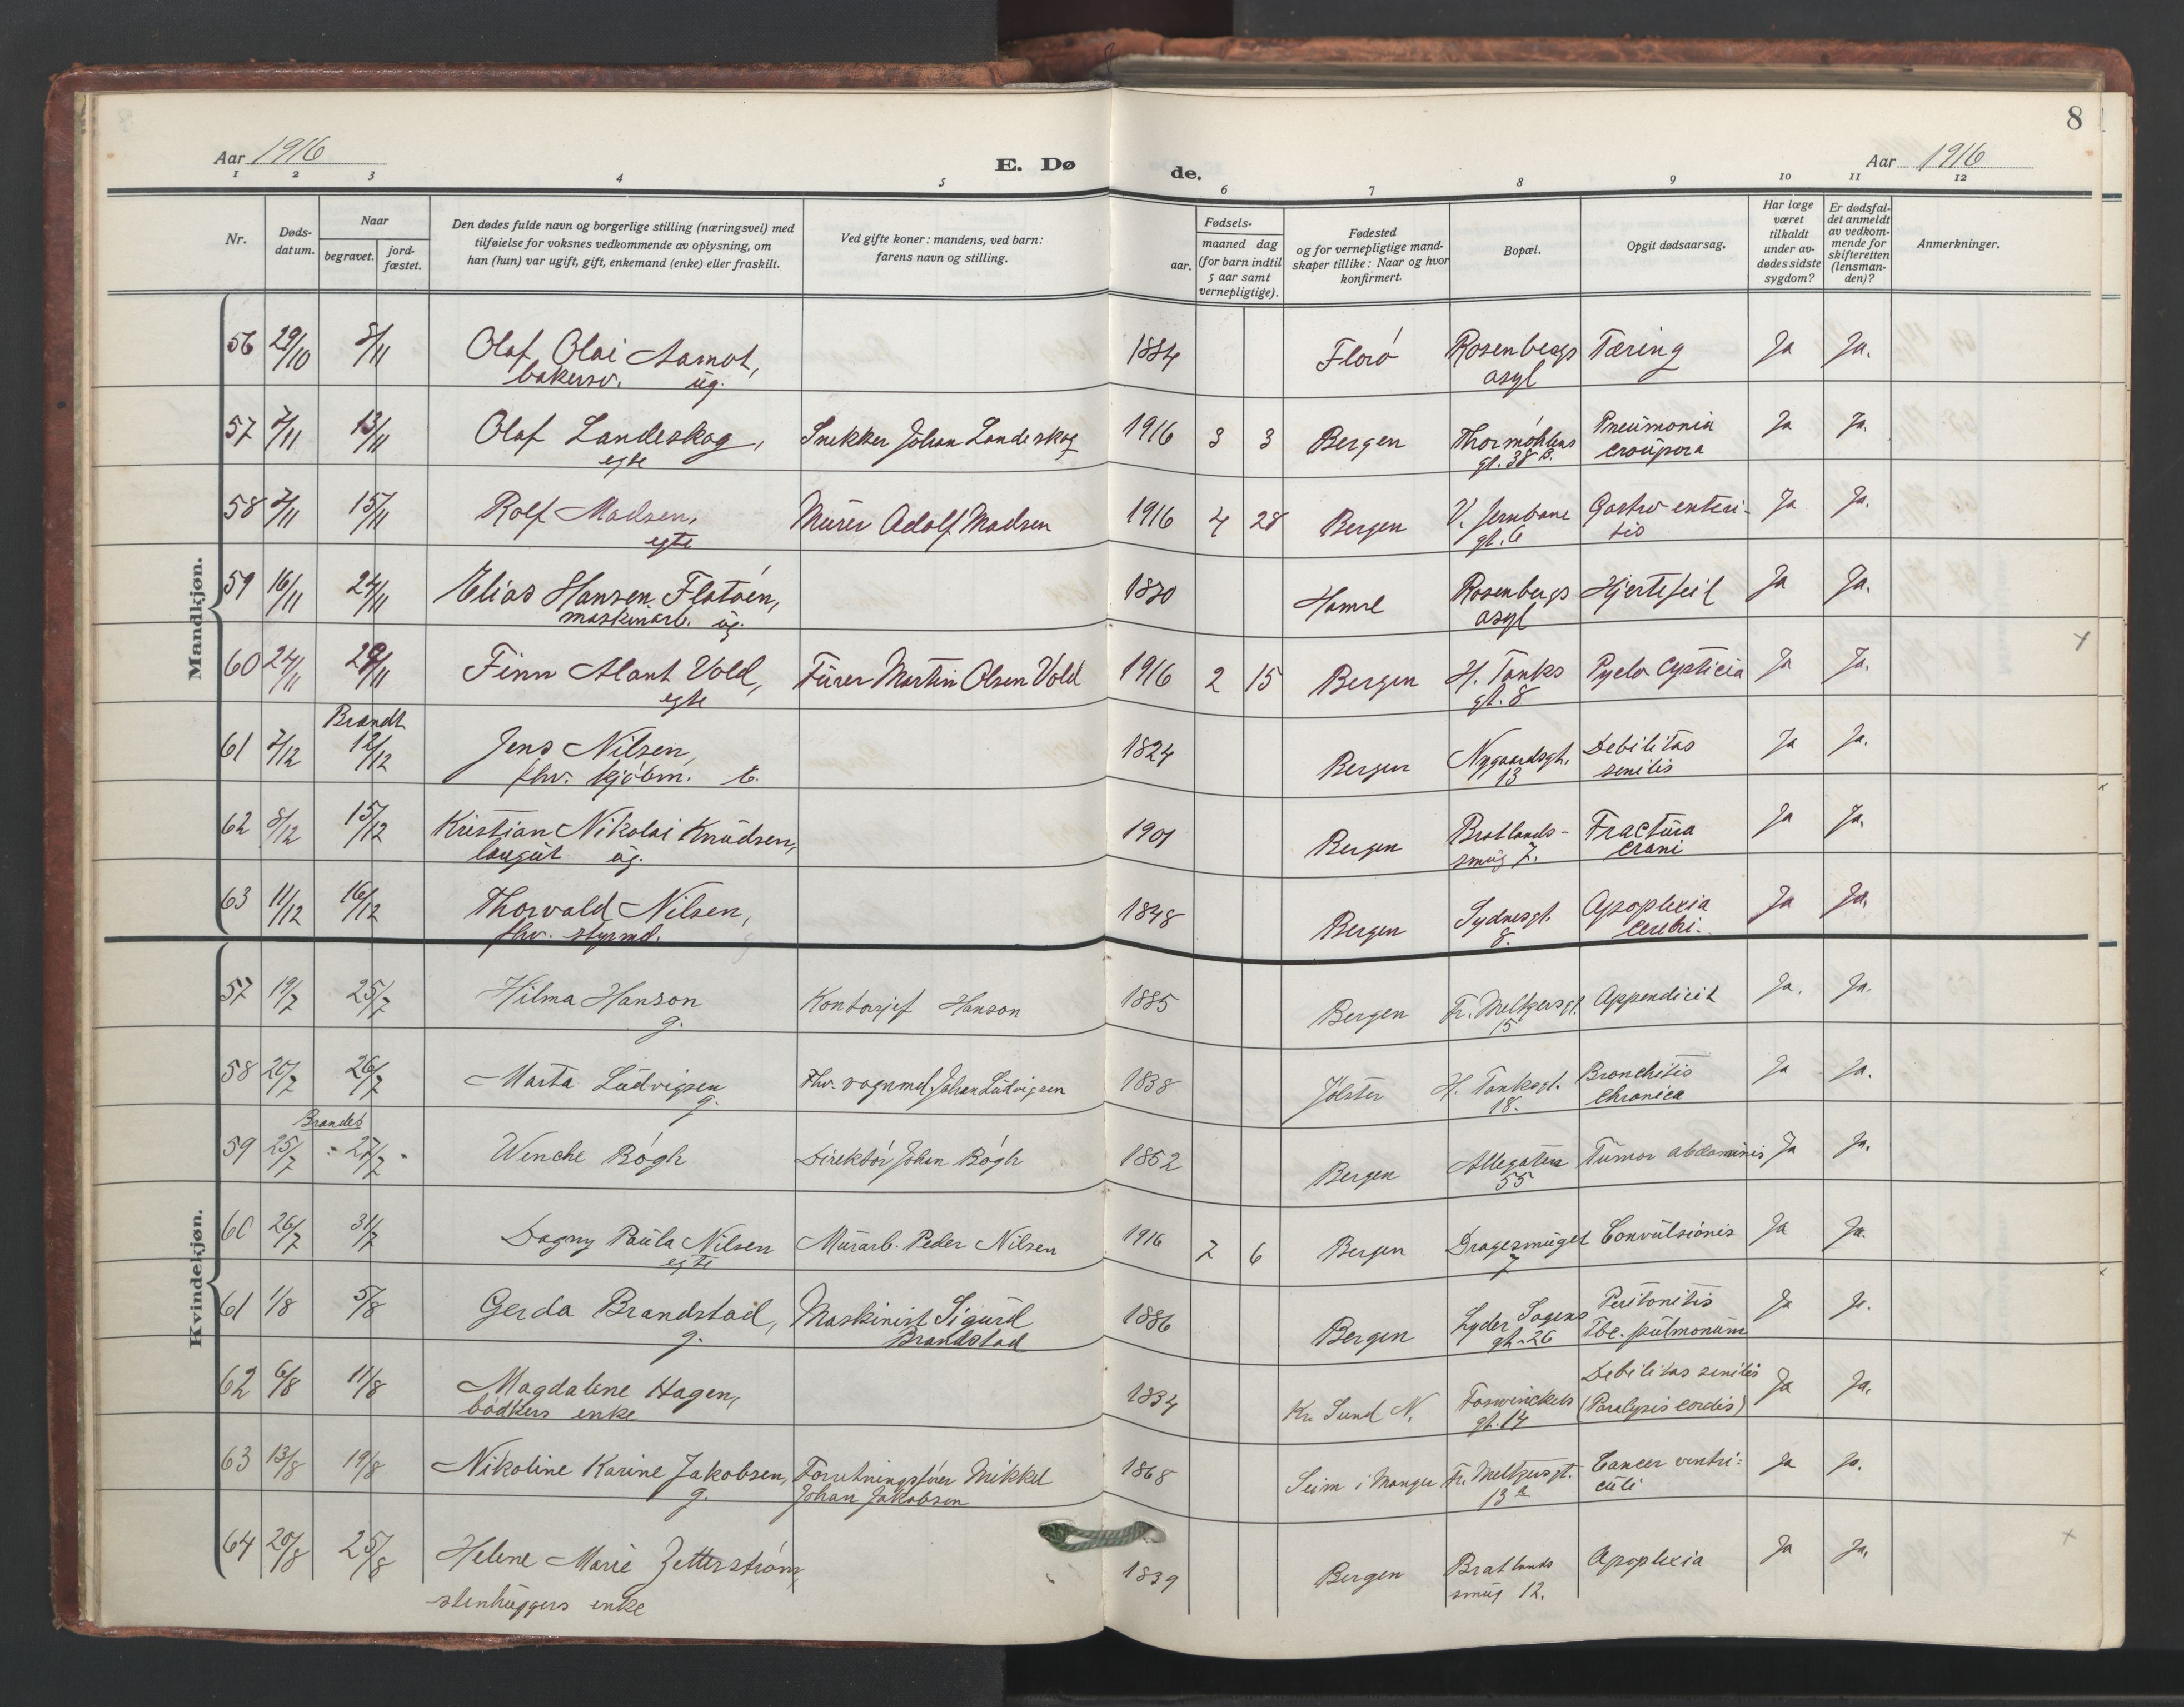 8
Aar 1916 E. Døde. Aar 1916
1 2 3 4 5 6 7 8 9 10 11 12
Nr. | Døds-datum. | Naar begravet. | jord-fæstet. | Den dødes fulde navn og borgerlige stilling (næringsvei) med tilføielse for voksnes vedkommende av oplysning, om han (hun) var ugift, gift, enkemand (enke) eller fraskilt. | Ved gifte koner: mandens, ved barn: farens navn og stilling. | Fødsels- aar. | maaned dag (for barn indtil 5 aar samt vernepligtige). | Fødested og for vernepligtige mandskaper tillike: Naar og hvor konfirmert. | Bopæl. | Opgit dødsaarsag. | Har læge været tilkaldt under avdødes sidste sygdom? | Er dødsfaldet anmeldt av vedkommende for skifteretten (lensmanden)? | Anmerkninger.
Mandkjøn.
56 29/10 8/11 Olaf Olai Aamot, 1884 Florø Rosenbergs Tæring Ja Ja.
bakersv. ug. asyl
57 7/11 13/11 Olaf Landeskog, Snekker Johan Landeskog 1916 3 3 Bergen Thormøhlens Pneumonia Ja Ja.
egte gt. 38 B. croupora
58 7/11 15/11 Rolf Madsen, Murer Adolf Madsen 1916 4 28 Bergen V. Jernbane Gastro enteri- Ja Ja.
egte gt. 6 tis
59 16/11 24/11 Elias Hansen Flatøen, 1830 Hamre Rosenbergs Hjertefeil Ja Ja.
maskinarb. ug. asyl
60 24/11 29/11 Finn Alant Vold, Furer Martin Olsen Vold 1916 2 15 Bergen H. Tanks Pyelo Cysticia Ja Ja.
egte gt. 8
Brændt
61 7/12 12/12 Jens Nilsen, 1824 Bergen Nygaardsgt. Debilitas Ja Ja.
fhv. kjøbm. E. 13 senilis
62 8/12 15/12 Kristian Nikolai Knudsen, 1901 Bergen Bratlands- Fractura Ja Ja.
laugut ug. smug 7. Crani
63 11/12 16/12 Thorvald Nilsen, 1848 Bergen Sydnesgt. Apoplexia Ja Ja.
fhv. styrmd. 8. Cerebri.
Kvindekjøn.
57 19/7 25/7 Hilma Hanson Kontorsjef Hanson 1885 Bergen Fr. Meltzersgt. Appendicit Ja. Ja.
g. 15
58 20/7 26/7 Marta Ludvigsen Fhv. vognmd Johan Ludvigsen 1838 Jølster H. Tanksgt. Bronchitis Ja Ja.
g. 18. Chronica
Brændt
59 25/7 27/7 Wenche Bøgh Direktør Johan Bøgh 1852 Bergen Allegaten Tumor abdominis Ja Ja.
55
60 26/7 31/7 Dagny Paula Nilsen Murarb. Peder Nilsen 1916 2 6 Bergen Dragesmuget Convulsionis Ja Ja.
egte 7
61 1/8 5/8 Gerda Brandstad, Maskinist Sigurd 1886 Bergen Lyder Sagens Peritonitis Ja Ja.
g. Brandstad gt. 26 Tbc. pulmonum
62 6/8 11/8 Magdalene Hagen, 1834 Kr. Sund N. Foswinckels Debilitas senilis Ja Ja.
bødkers enke gt. 14 (Paralysis cordis)
63 13/8 19/8 Nikoline Karine Jakobsen, Forretningsfører Mikkel 1868 Seim i Manger Fr. Meltzersgt. Cancer ventri- Ja Ja.
g. Johan Jakobsen 13 a culi
64 20/8 25/8 Helene Marie Zetterstrøm, 1839 Bergen Bratlands Apoplexia Ja Ja.
stenhuggers enke smug 12.